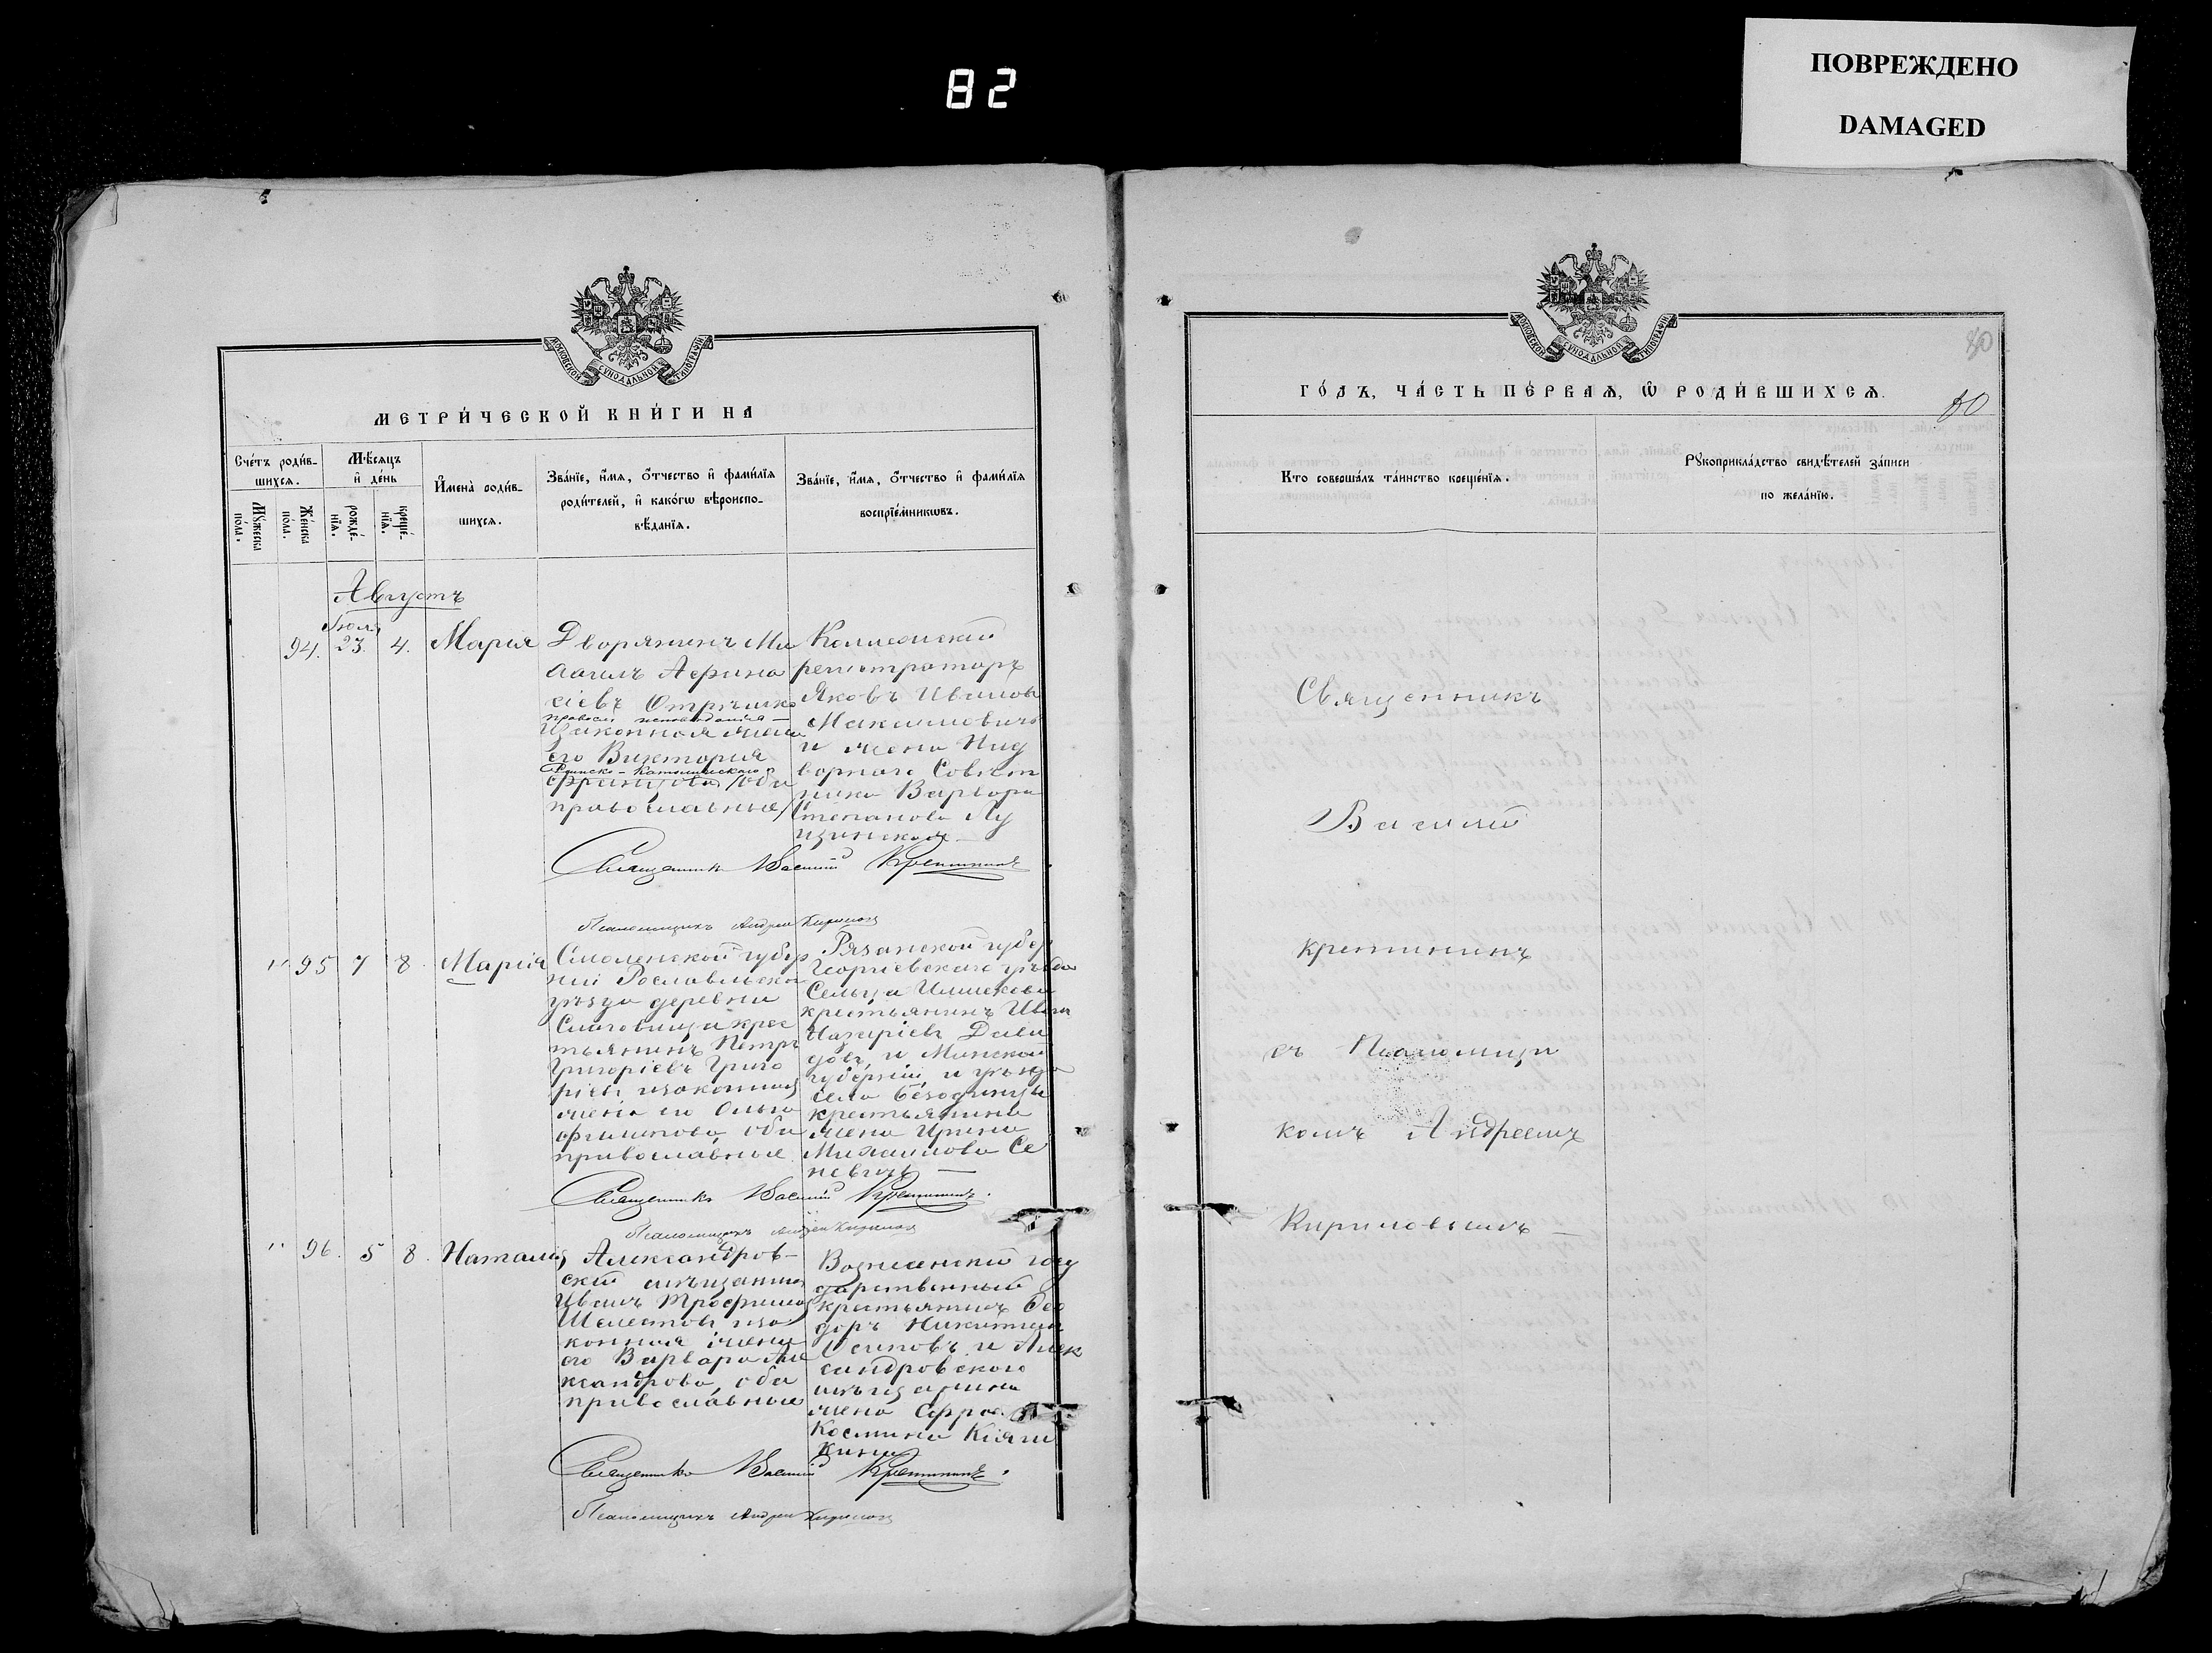 82
ПОВРЕЖДЕНО
DAMAGED
МОСКОВСКОЙ СѴНОДАЛЬНОЙ ТИПОГРАФІИ
МЕТРИ́ЧЕСКОЙ КНИ́ГИ НА
Сче́тъ роди́в-
шихсѧ.
Мꙋ́жеска
по́ла.
Же́нска
по́ла.
Мѣ́сѧцъ
и҆ де́нь
рожде́-
нїѧ.
креще́-
нїѧ.
И҆мена̀ роди́в-
шихсѧ.
Зва́нїе, и҆́мѧ, ѻ҆́тчество и҆ фами́лїѧ
роди́телей, и҆ како́гѡ вѣроиспо-
вѣ́данїѧ.
Зва́нїе, и҆́мѧ, ѻ҆́тчество и҆ фами́лїѧ
воспрїе́мникѡвъ.
Августъ
Іюля
94. 23. 4. Марія
Дворянинъ Ми
хаилъ Афана
сіевъ
правосл. исповѣданія
Изаконная жена
его Викторія
Римско-Католическаго
Францова /оба
православные/
Коллежскій
регистраторъ
Яковъ Иванов
Максимовичъ
и жена Над
ворнаго Совѣт
ника Варвара
Степанова Лу
щинская
Священникъ Василій Кретининъ
Псаломщикъ Андрей Кириловъ
" 95 7 8. Марія
Смоленской губер
ніи Рославльско
уѣзда деревни
крес
тьянинъ Петръ
Григоріевъ Григо
ріевъ изаконная
жена его Ольга
Филипова, оба
православные.
Рязанской губер
Георгіевскаго уѣзда
Сельца
крестьянинъ Иван
Назаріевъ Дави
довъ, и Минской
губерніи и уѣзда
села
крестьянина
жена Ирина
Михаилова Се
Священникъ Василій Кретининъ.
Псаломщикъ Андрей Кириловъ
" 96. 5 8. Наталія
Александров-
скій мѣщанинъ
Иванъ Трофимов
Шелестовъ иза
конная жена
его Варвара Але
ксандрова, оба
православные
Вознесенскій госу
дарственный
крестьянинъ Өео
доръ Никитинъ
Осиповъ и Алек
сандровскаго
мѣщанина
жена
Космина
Священникъ Василій Кретининъ.
Псаломщикъ Андрей Кириловъ
МОСКОВСКОЙ СѴНОДАЛЬНОЙ ТИПОГРАФІИ
80
ГО́ДЪ, ЧА́СТЬ ПЕ́РВАѦ, Ѡ҆ РОДИ́ВШИХСѦ.
80
Кто соверша́лъ та́инство креще́нїѧ.
Рꙋкоприкла́дство свидѣ́телей за́писи
по жела́нїю.
Священникъ
Василій
Кретининъ
съ Псаломщи
комъ Андреемъ
Кириловымъ